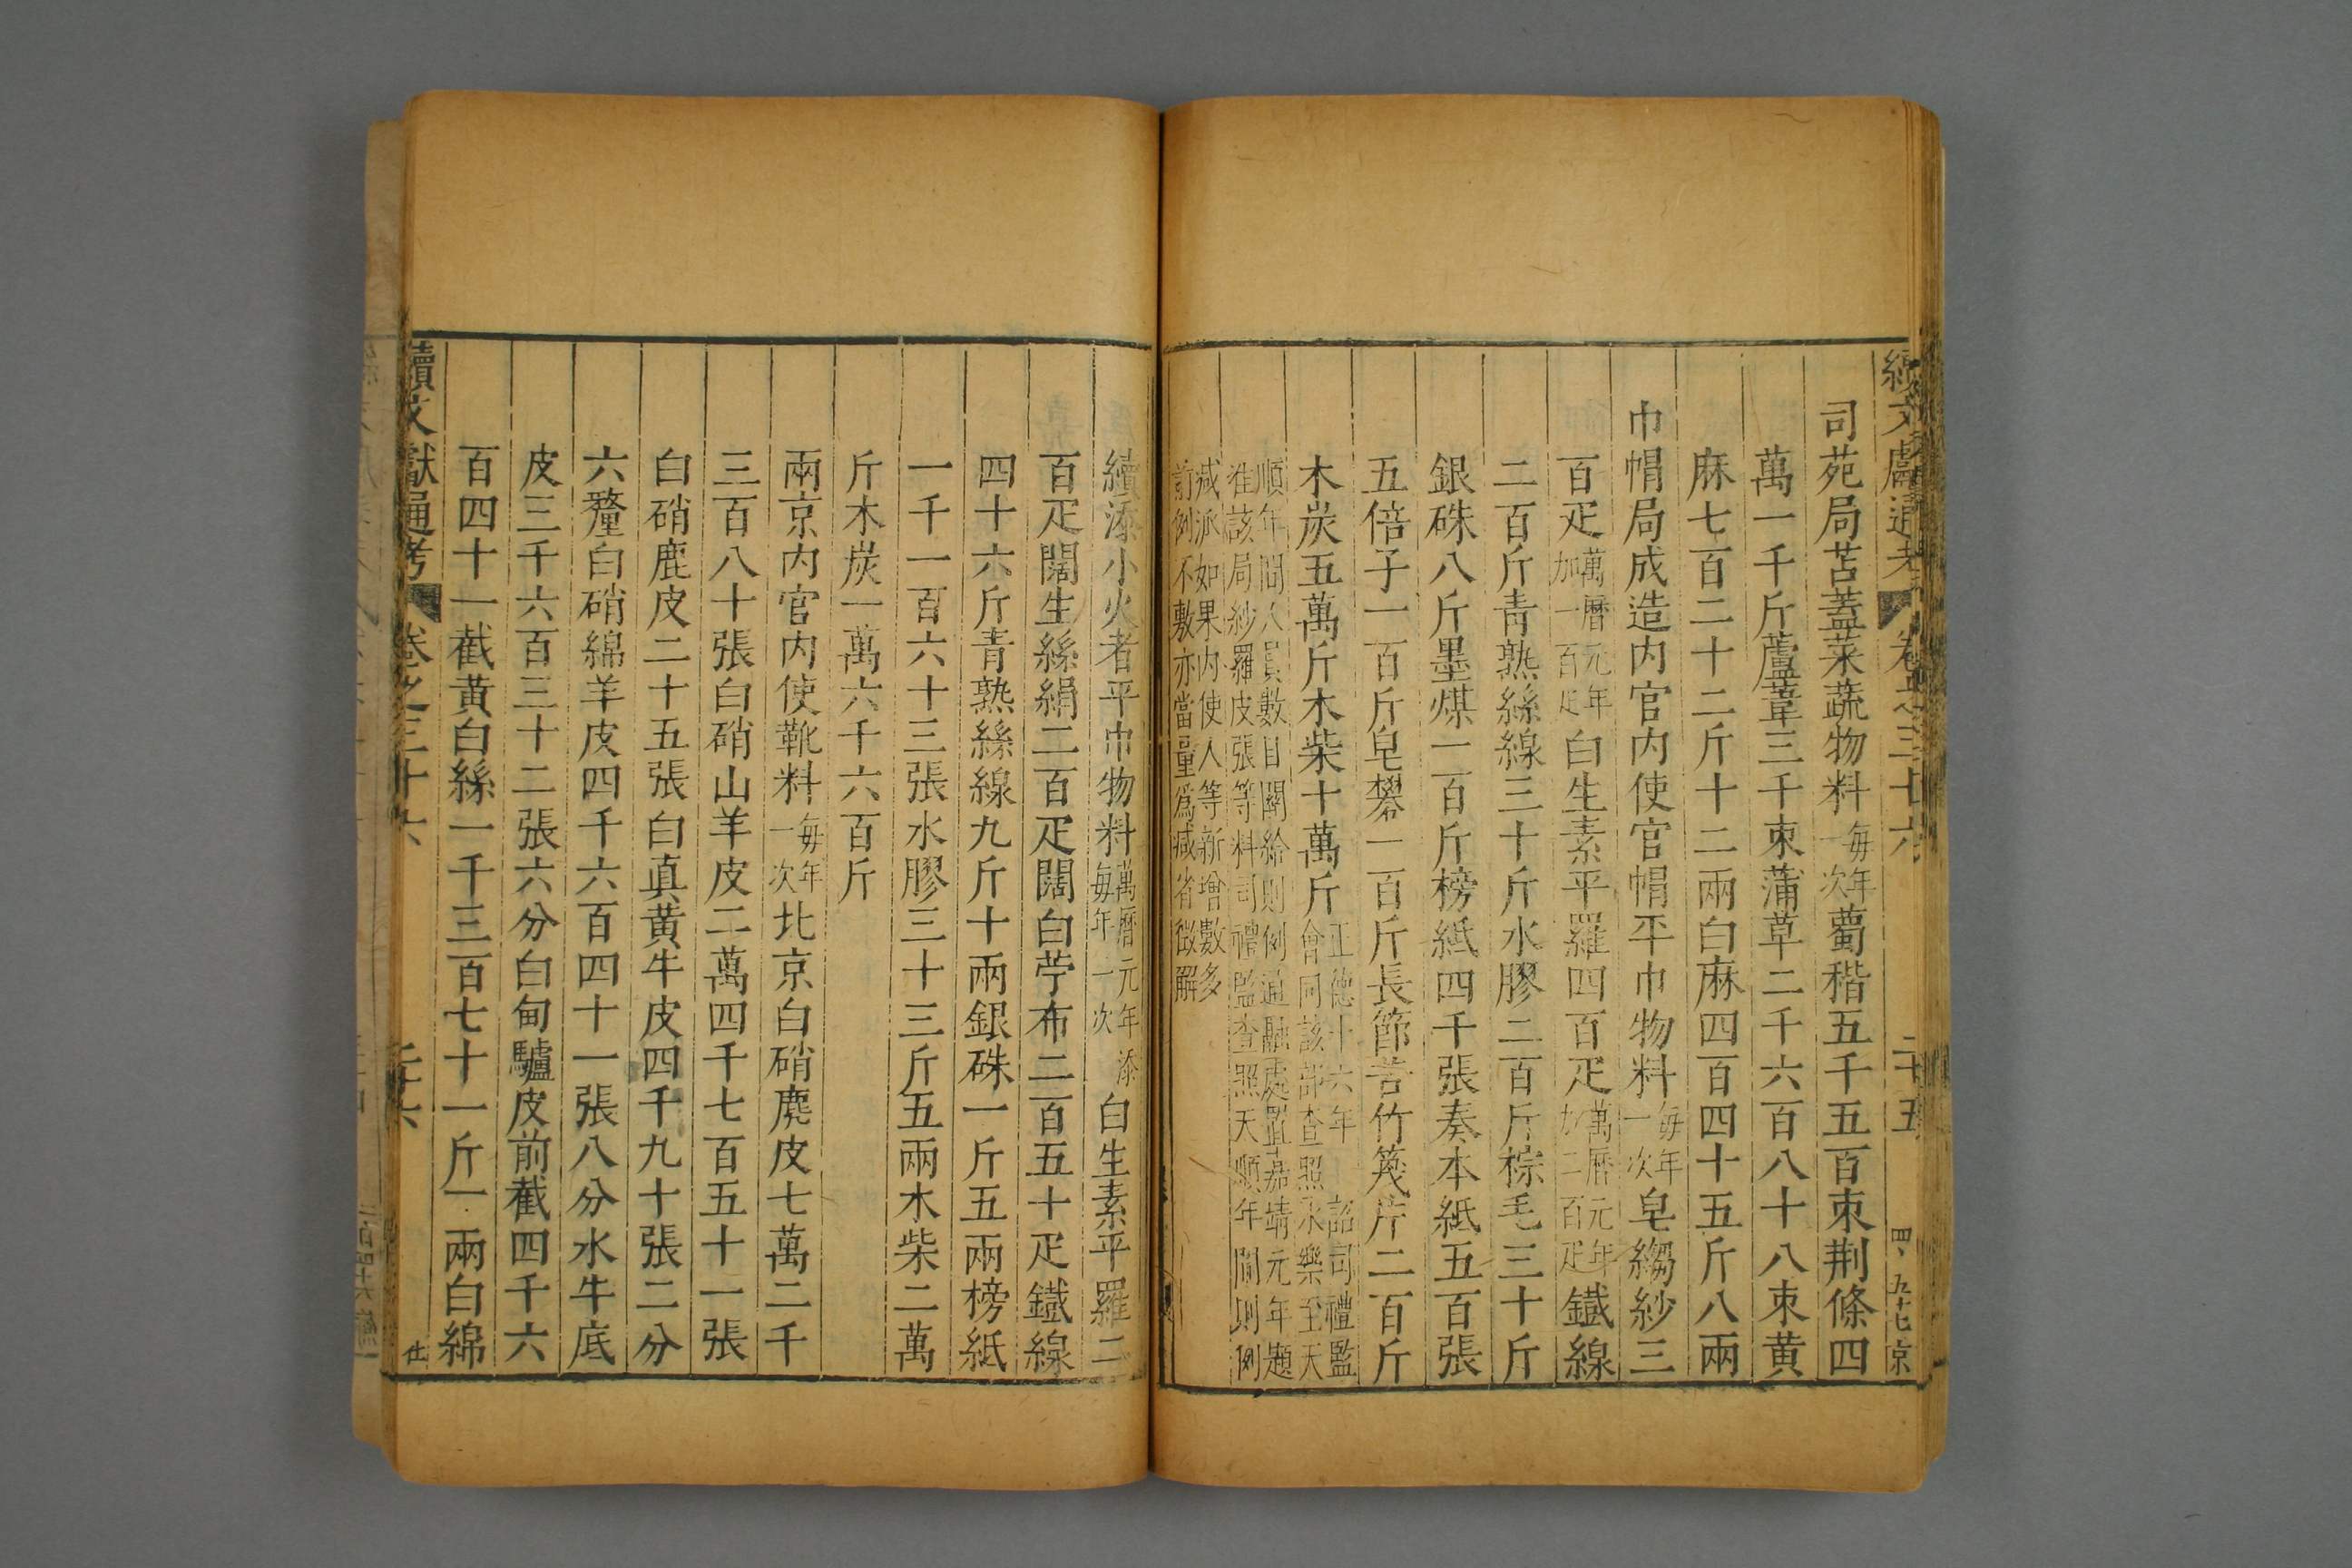 續文獻通考 卷之三十六 二十五 四 九十七 京
司苑局苫蓋菜蔬物料每年一次蜀稭五千五百束荆條四
萬一千斤蘆葦三千束蒲草二千六百八十八束黄
麻七百二十二斤十二兩白麻四百四十五斤八兩
巾帽局成造内官内使官帽平巾物料每年一次皂縐紗三
百疋萬曆元年加一百疋白生素平羅四百疋萬曆元年加二百疋鐵線
二百斤青熟絲線三十斤水膠二百斤棕毛三十斤
銀硃八斤墨煤一百斤榜紙四千張奏本紙五百張
五倍子一百斤皂礬一百斤長節苦竹篾片二百斤
木炭五萬斤木柴十萬斤正德十六年 詔司禮監會同該部查照永樂至天
順年間人員數目關給則例通融處置嘉靖元年題准該局紗羅皮張等料司禮監查照天順年間則例
減派如果内使人等新增數多前例不敷亦當量爲減省徵解
續添小火者平巾物料萬曆元年添每年一次白生素平羅二
百疋闊生絲絹二百疋闊白苧布二百五十疋鐵線
四十六斤青熟絲線九斤十兩銀硃一斤五兩榜紙
一千一百六十三張水膠三十三斤五兩木柴二萬
斤木炭一萬六千六百斤
兩京内官内使靴料每年一次北京白硝麂皮七萬二千
三百八十張白硝山羊皮二萬四千七百五十一張
白硝鹿皮二十五張白真黄牛皮四千九十張二分
六釐白硝綿羊皮四千六百四十一張八分水牛底
皮三千六百三十二張六分白甸驢皮前截四千六
百四十一截黄白絲一千三百七十一斤一兩白綿
續文獻通考 卷之三十六 仕